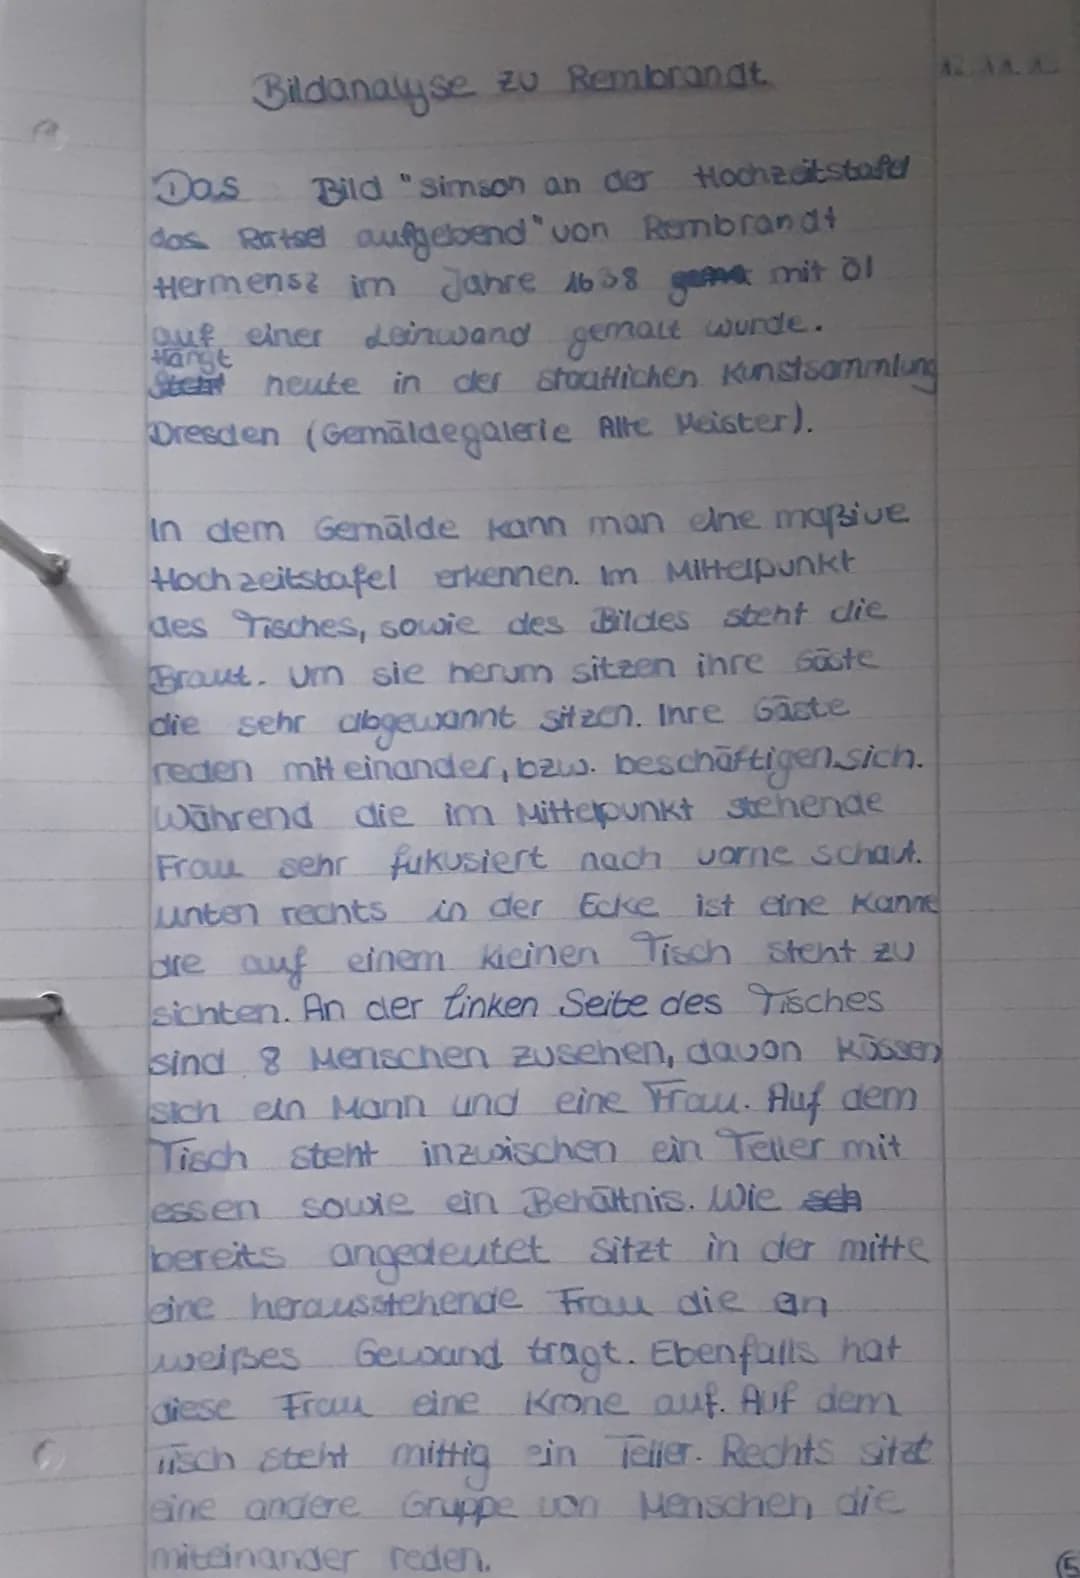 Bildanalyse zu Rembrandt
Das Bild "Simson an der Hochzeitstafel
das Ratsel aufgebend" von Rembrandt
Hermensz im Jahre 1638 mit öl
auf einer Leinwand gemalt wurde.
Hängt
Steht heute in der staatlichen Kunstsammlung
Dresden (Gemäldegalerie Alte Meister).
In dem Gemälde kann man eine maßive
Hochzeitstafel erkennen. Im Mittelpunkt
des Tisches, sowie des Bildes steht die
Braut. Um sie herum sitzen ihre Gäste
die sehr abgewannt sitzen. Ihre Gäste
reden miteinander, bzw. beschäftigen sich.
Während die im Mittelpunkt stehende
Frau sehr fukusiert nach vorne schaut.
unten rechts in der Ecke ist eine Kanne
die auf einem kleinen Tisch steht zu
sichten. An der linken Seite des Tisches
sind 8 Menschen zusehen, davon Küssen
sich ein Mann und eine Frau. Auf dem
Tisch steht inzwischen ein Teller mit
essen sowie ein Behältnis. Wie sch
bereits angedeutet sitzt in der mitte
eine herausstehende Frau die an
weißes Gewand tragt. Ebenfalls hat
diese Frau eine Krone auf. Auf dem
Tisch steht mittig ein Teller. Rechts sitzt
eine andere Gruppe von Menschen, die
miteinander reden.
5